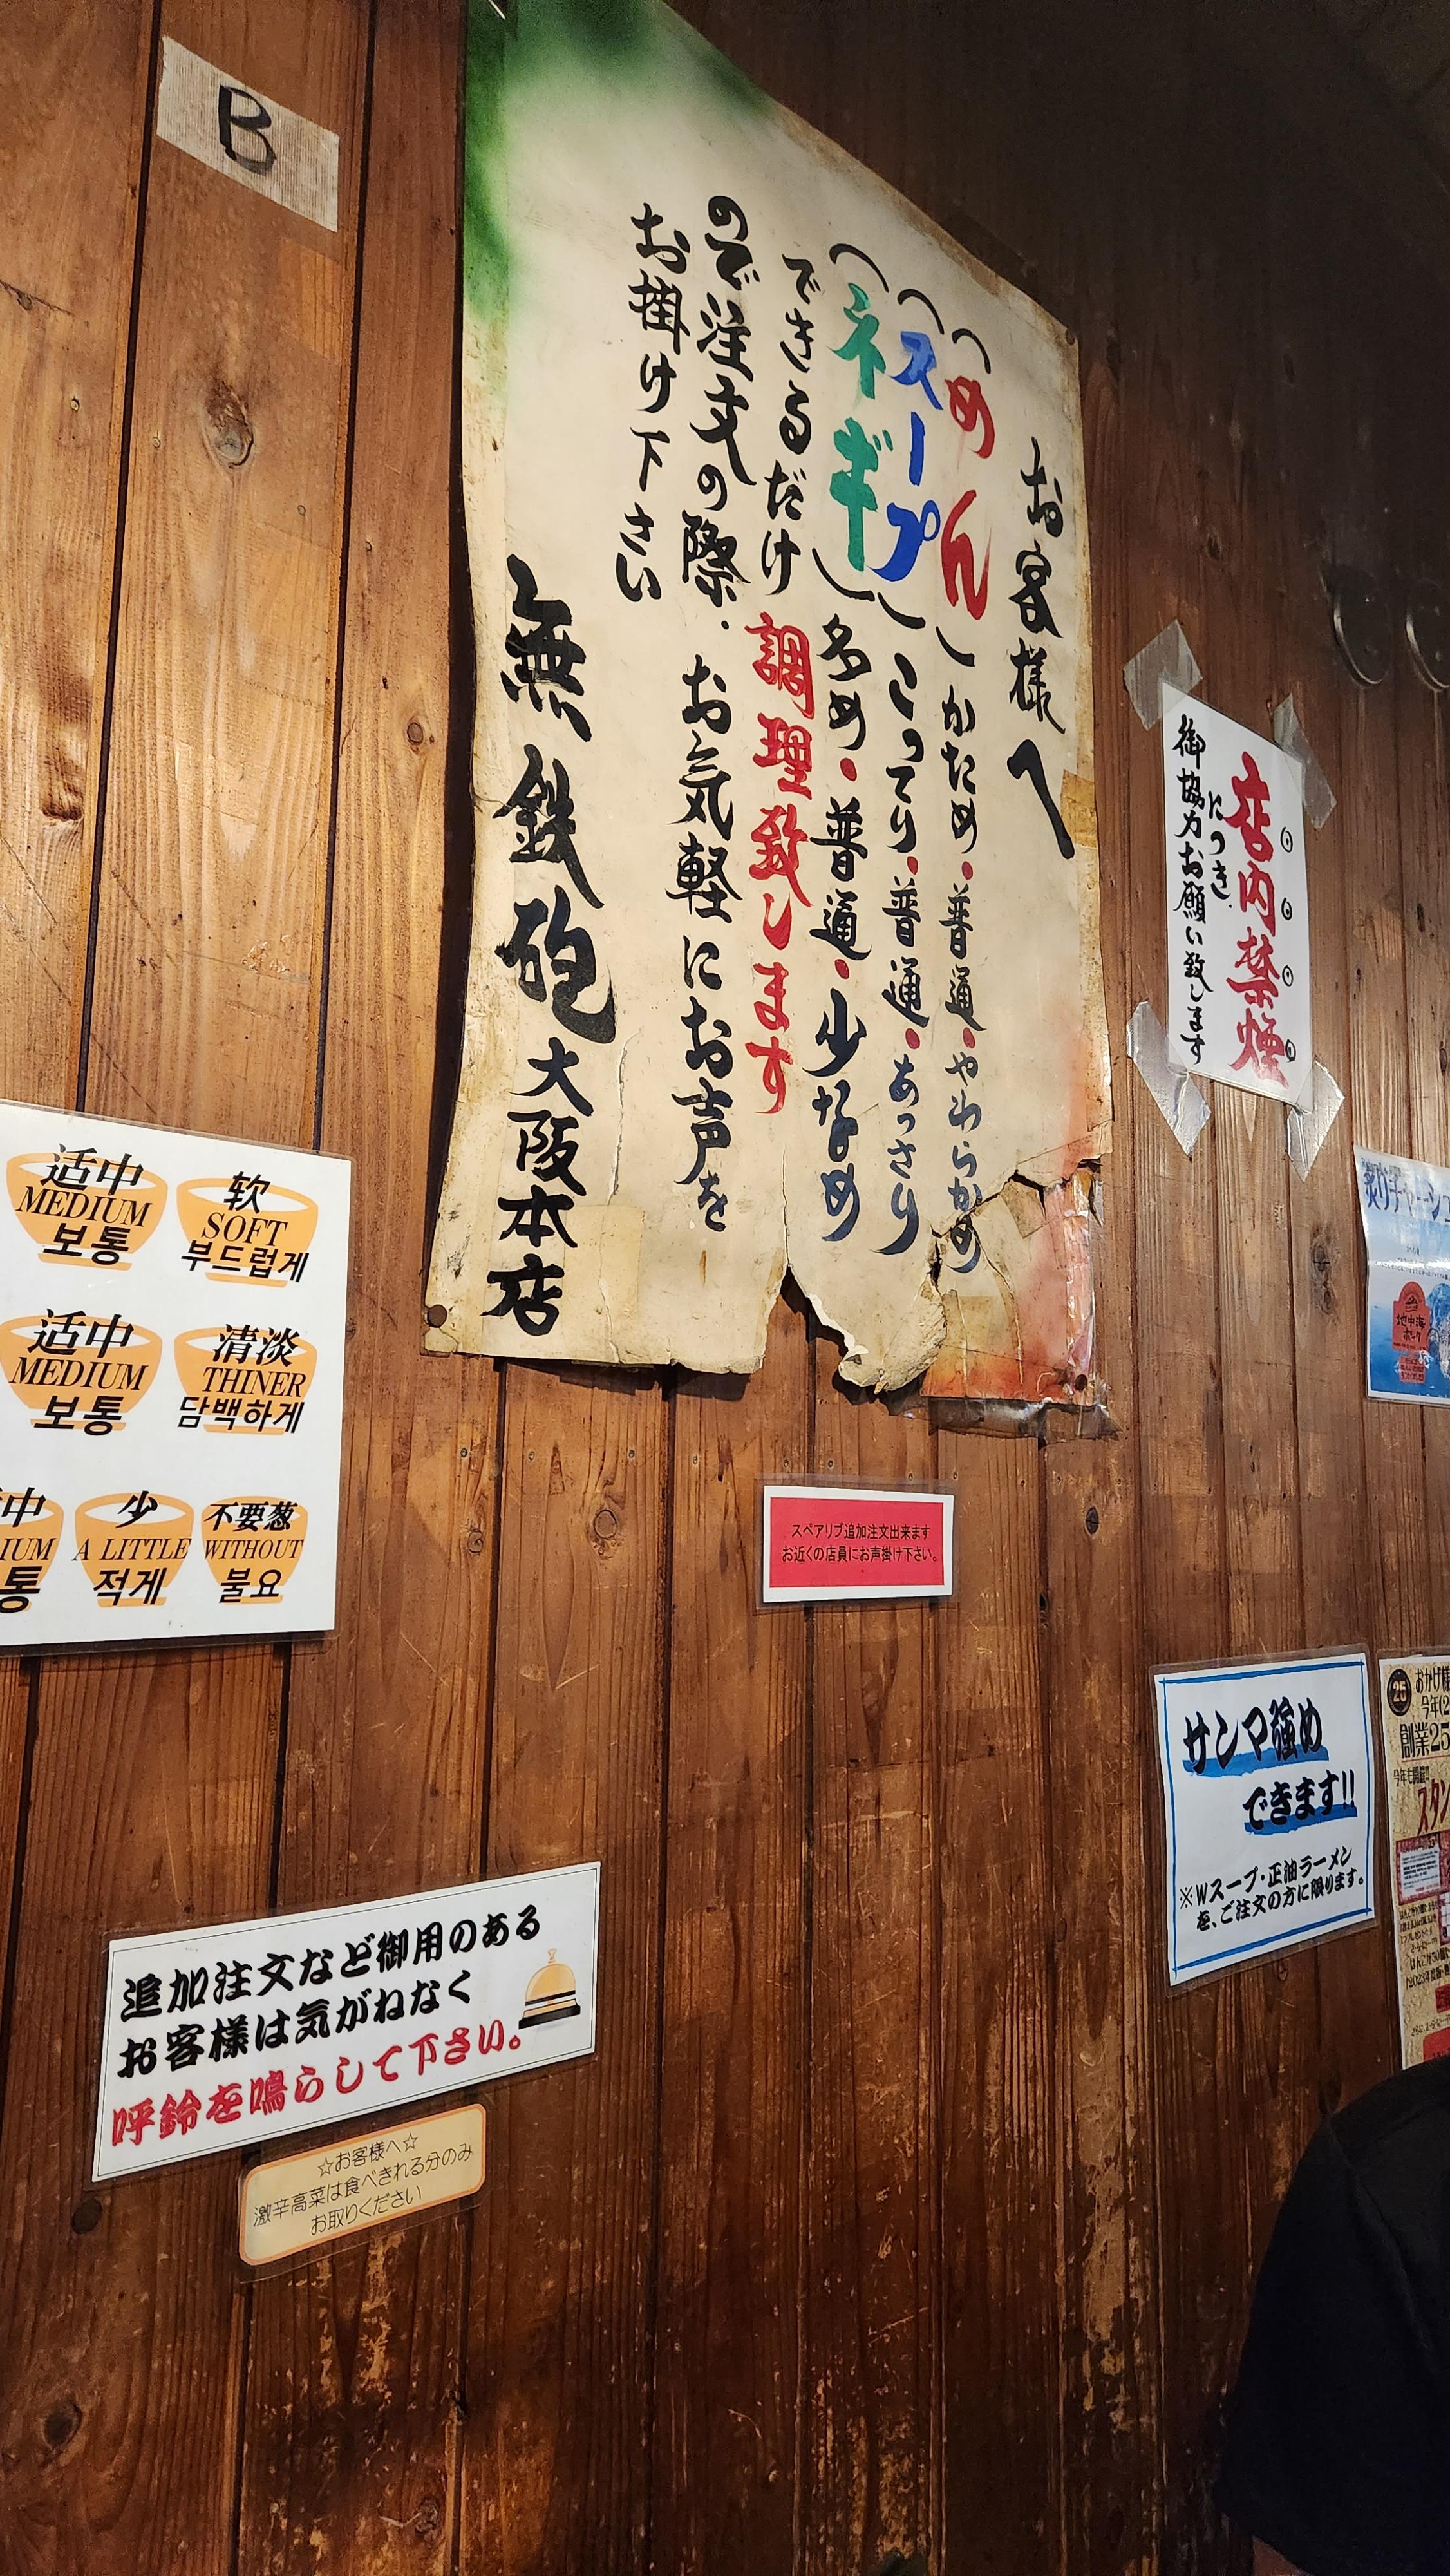 B
お客様へ
(めん) かため・普通・やわらかめ
(スープ) こってり・普通・あっさり
(ネギ) 多め・普通・少なめ
できるだけ 調理致します
ので注文の際、お気軽にお声を
お掛け下さい
無鉄砲 大阪本店
店内禁煙
につき、
御協力お願い致します
适中
MEDIUM
보통
软
SOFT
부드럽게
适中
MEDIUM
보통
清淡
THINER
담백하게
中
IUM
통
少
A LITTLE
적게
不要葱
WITHOUT
불요
炙りチャーシュ
地中海
ポーク
スペアリブ追加注文出来ます
お近くの店員にお声掛け下さい。
サンマ強め
できます!!
※Wスープ・正油ラーメン
を、ご注文の方に限ります。
25
おかげ様
今年(2
創業25
今年も開催!!
スタン
追加注文など御用のある
お客様は気がねなく
呼鈴を鳴らして下さい。
☆お客様へ☆
激辛高菜は食べきれる分のみ
お取りください